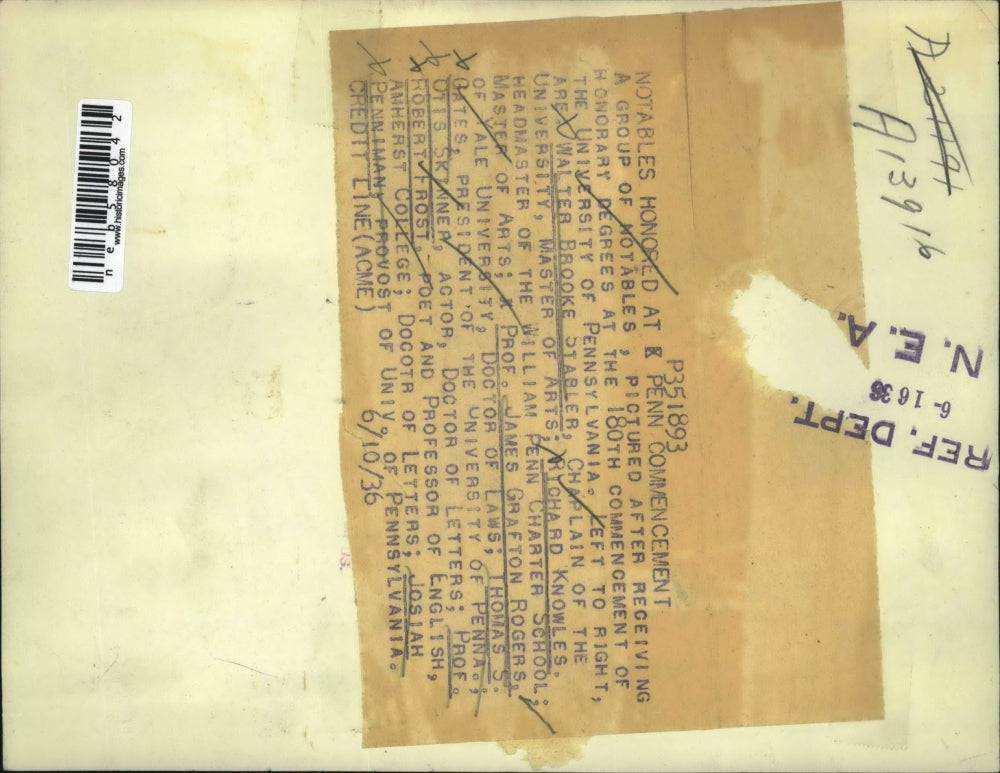 P351893
NOTABLES HONORED AT PENN COMMENCEMENT
A GROUP OF NOTABLES, PICTURED AFTER RECEIVING
HONORARY DEGREES AT THE 180TH COMMENCEMENT OF
THE UNIVERSITY OF PENNSYLVANIA. LEFT TO RIGHT,
ARE WALTER BROOKE STABLER, CHAPLAIN OF THE
UNIVERSITY, MASTER OF ARTS; RICHARD KNOWLES.
HEADMASTER OF THE WILLIAM PENN CHARTER SCHOOL,
MASTER OF ARTS; PROF. JAMES GRAFTON ROGERS,
OF YALE UNIVERSITY, DOCTOR OF LAWS; THOMAS S.
GATES, PRESIDENT OF THE UNIVERSITY OF PENNA.;
OTIS SKINNER, ACTOR, DOCTOR OF LETTERS; PROF.
ROBERT FROST, POET AND PROFESSOR OF ENGLISH,
AMHERST COLLEGE; DOCOTR OF LETTERS; JOSIAH
PENNIMAN, PROVOST OF UNIV. OF PENNSYLVANIA.
CREDIT LINE(ACME) 6/10/36
A13916
REF. DEPT.
6-16 36
N. E. A.
www.historicimages.com
neb58042